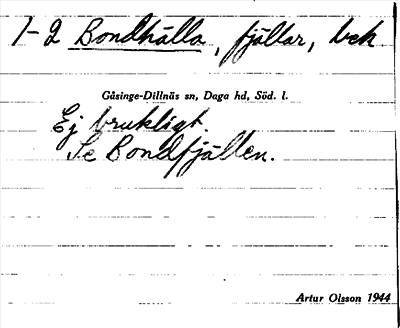 1-2 Bondhälla, fjällar, bek
Gåsinge-Dillnäs sn, Daga hd, Söd. l.
Ej brukligt.
Se Bondfjällen.
Artur Olsson 1944